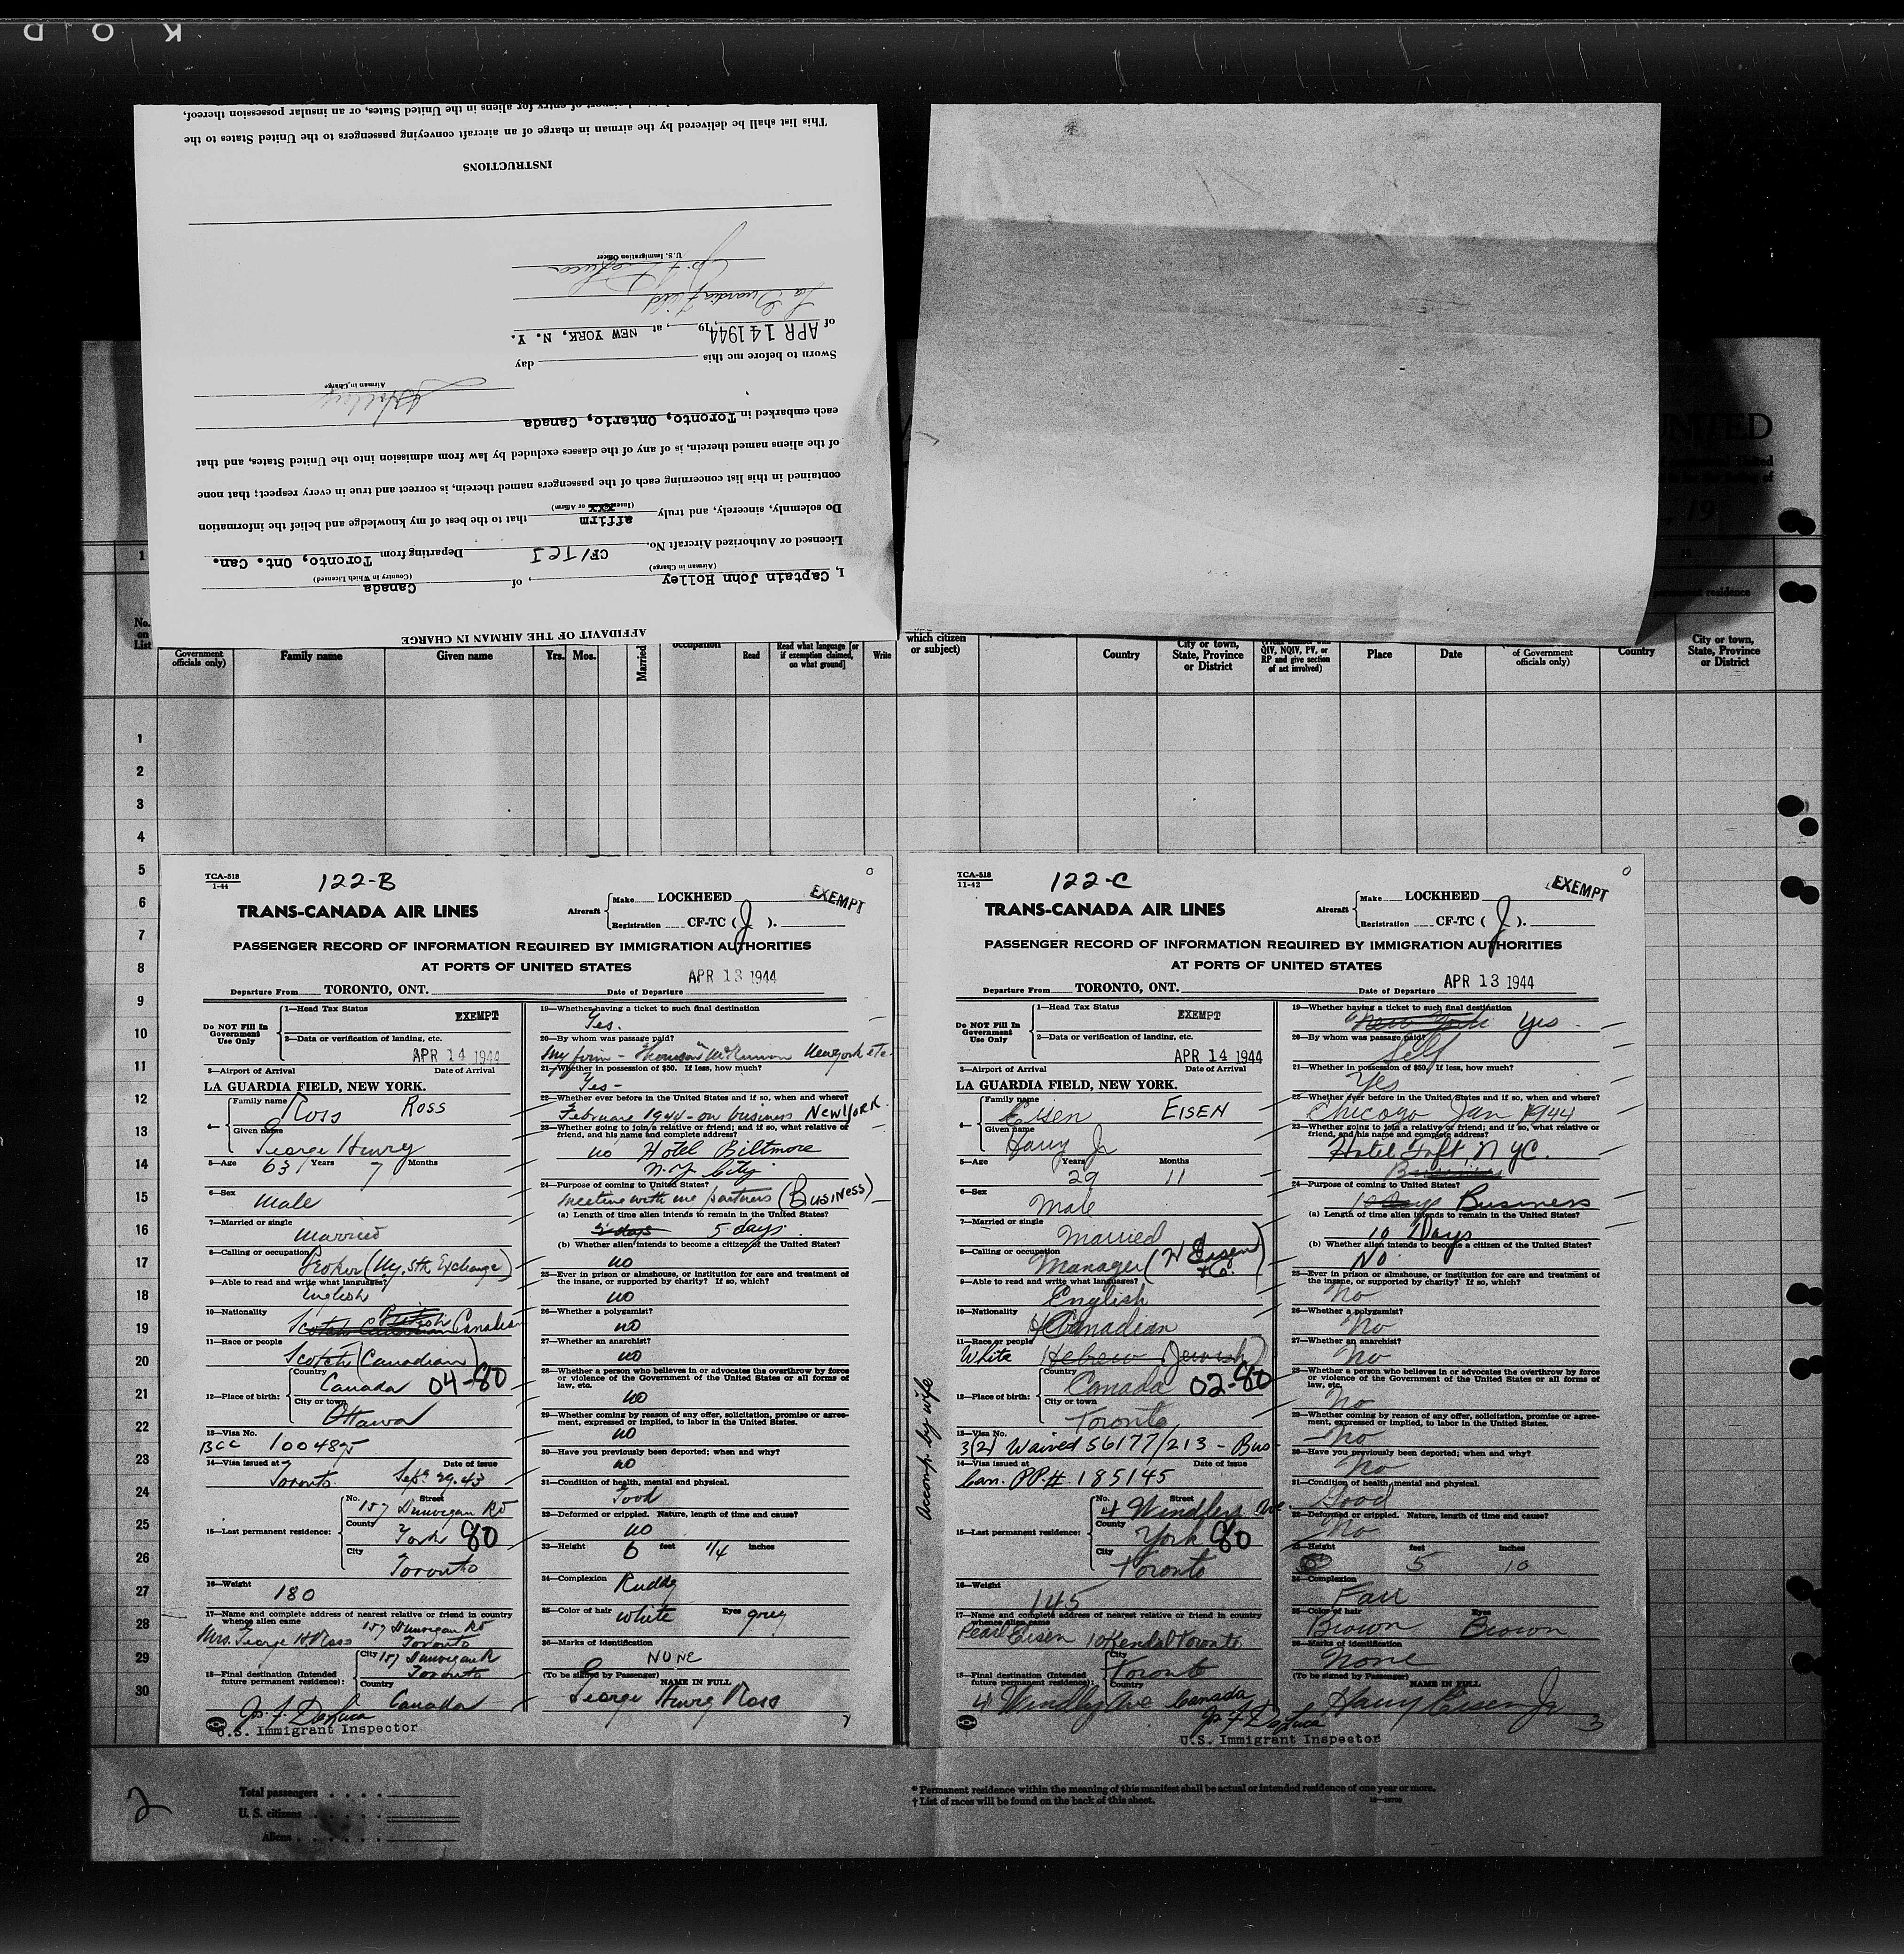 K O D
AFFIDAVIT OF THE AIRMAN IN CHARGE
I, Captain John Holley, of Canada
(Airman in Charge) (Country in Which Licensed)
Licensed or Authorized Aircraft No. CF/TCJ Departing from Toronto, Ont. Can.
Do solemnly, sincerely, and truly affirm that to the best of my knowledge and belief the information
(Insert Swear or Affirm)
contained in this list concerning each of the passengers named therein, is correct and true in every respect; that none
of the aliens named therein, is of any of the classes excluded by law from admission into the United States, and that
each embarked in Toronto, Ontario, Canada
J Holley
Airman in Charge
Sworn to before me this day
of APR 14 1944, 19, at NEW YORK, N. Y.
La Guardia Field
U.S. Immigration Officer
INSTRUCTIONS
This list shall be delivered by the airman in charge of an aircraft conveying passengers to the United States to the
port of entry for aliens in the United States, or an insular possession thereof,
UNITED
, 19
permanent residence
No. on List
Government officials only)
Family name
Given name
Yrs.
Mos.
Married
occupation
Read
Read what language [or if exemption claimed, on what ground]
Write
which citizen or subject)
Country
City or town, State, Province or District
QIV, NQIV, PV, or RP and give section of act involved)
Place
Date
of Government officials only)
Country
City or town, State, Province or District
1
2
3
4
5
6
7
8
9
10
11
12
13
14
15
16
17
18
19
20
21
22
23
24
25
26
27
28
29
30
TCA-518
1-44
122-B
EXEMPT
TRANS-CANADA AIR LINES
Aircraft Make LOCKHEED
Registration CF-TC ( J ).
PASSENGER RECORD OF INFORMATION REQUIRED BY IMMIGRATION AUTHORITIES
AT PORTS OF UNITED STATES
APR 13 1944
Departure From TORONTO, ONT. Date of Departure
Do NOT Fill In Government Use Only
1—Head Tax Status EXEMPT
2—Data or verification of landing, etc.
APR 14 1944
3—Airport of Arrival Date of Arrival
LA GUARDIA FIELD, NEW YORK.
4— Family name Ross ROSS
Given name George Henry
5—Age 63 Years 7 Months
6—Sex Male
7—Married or single Married
8—Calling or occupation Broker (Ny. Stk Exchange)
9—Able to read and write what languages? English
10—Nationality British Canadian
11—Race or people Scotch (Canadian)
12—Place of birth: Country Canada 04-80
City or town Ottawa
13—Visa No. BCC 1004895
14—Visa issued at Toronto Date of issue Sept 29.43
15—Last permanent residence: No. Street 157 Dunvegan Rd
County York 80
City Toronto
16—Weight 180
17—Name and complete address of nearest relative or friend in country whence alien came
Mrs. George H Ross 157 Dunvegan Rd Toronto
18—Final destination (Intended future permanent residence): City 157 Dunvegan R Toronto
Country Canada
J. F. DeLuca
U.S. Immigrant Inspector
19—Whether having a ticket to such final destination
Yes.
20—By whom was passage paid?
My firm - Thomson McKinnon New York etc.
21—Whether in possession of $50. If less, how much?
Yes -
22—Whether ever before in the United States and if so, when and where?
February 1944 - on business New York
23—Whether going to join a relative or friend; and if so, what relative or friend, and his name and complete address?
no Hotel Biltmore
N.Y. City
24—Purpose of coming to United States?
meeting with me partners (Business)
(a) Length of time alien intends to remain in the United States?
2 days 5 days.
(b) Whether alien intends to become a citizen of the United States?
no
25—Ever in prison or almshouse, or institution for care and treatment of the insane, or supported by charity? If so, which?
no
26—Whether a polygamist?
no
27—Whether an anarchist?
no
28—Whether a person who believes in or advocates the overthrow by force or violence of the Government of the United States or all forms of law, etc.
no
29—Whether coming by reason of any offer, solicitation, promise or agreement, expressed or implied, to labor in the United States.
no
30—Have you previously been deported; when and why?
no
31—Condition of health, mental and physical.
Good
32—Deformed or crippled. Nature, length of time and cause?
no
33—Height 6 feet 1/4 inches
34—Complexion Ruddy
35—Color of hair white Eyes grey
36—Marks of identification
NONE
(To be signed by Passenger) NAME IN FULL
George Henry Ross
TCA-518
11-42
122-C
EXEMPT
TRANS-CANADA AIR LINES
Aircraft Make LOCKHEED
Registration CF-TC ( J ).
PASSENGER RECORD OF INFORMATION REQUIRED BY IMMIGRATION AUTHORITIES
AT PORTS OF UNITED STATES
APR 13 1944
Departure From TORONTO, ONT. Date of Departure
Do NOT Fill In Government Use Only
1—Head Tax Status EXEMPT
2—Data or verification of landing, etc.
APR 14 1944
3—Airport of Arrival Date of Arrival
LA GUARDIA FIELD, NEW YORK.
4— Family name Eisen EISEN
Given name Harry Jr
5—Age Years 29 Months 11
6—Sex Male
7—Married or single Married
8—Calling or occupation Manager (H Eisen & Co.)
9—Able to read and write what languages? English
10—Nationality Canadian
11—Race or people White Hebrew Jewish
12—Place of birth: Country Canada 02-80
City or town Toronto
13—Visa No. 3(2) Waived 56177/213 - Bus -
14—Visa issued at Can. PP.# 185145 Date of issue
15—Last permanent residence: No. Street 4 Windley Ave.
County York 80
City Toronto
16—Weight 145
17—Name and complete address of nearest relative or friend in country whence alien came
Pearl Eisen 10 Kendal Toronto
18—Final destination (Intended future permanent residence): City Toronto
Country
4 Windley Ave Canada
J. F. DeLuca
U.S. Immigrant Inspector
Accomp. by wife
19—Whether having a ticket to such final destination
New York Yes
20—By whom was passage paid?
Self
21—Whether in possession of $50. If less, how much?
Yes
22—Whether ever before in the United States and if so, when and where?
Chicago Jan 1944
23—Whether going to join a relative or friend; and if so, what relative or friend, and his name and complete address?
Hotel Taft, NYC.
Business
24—Purpose of coming to United States?
10 Days Business
(a) Length of time alien intends to remain in the United States?
10 Days
(b) Whether alien intends to become a citizen of the United States?
NO
25—Ever in prison or almshouse, or institution for care and treatment of the insane, or supported by charity? If so, which?
No
26—Whether a polygamist?
No
27—Whether an anarchist?
No
28—Whether a person who believes in or advocates the overthrow by force or violence of the Government of the United States or all forms of law, etc.
No
29—Whether coming by reason of any offer, solicitation, promise or agreement, expressed or implied, to labor in the United States.
No
30—Have you previously been deported; when and why?
No
31—Condition of health, mental and physical.
Good
32—Deformed or crippled. Nature, length of time and cause?
No
33—Height feet 5 inches 10
34—Complexion
Fair
35—Color of hair Brown Eyes Brown
36—Marks of identification
None
(To be signed by Passenger) NAME IN FULL
Harry Eisen Jr
3
2
Total passengers . . . .
U. S. citizens . . . . . .
Aliens . . . . . . . .
* Permanent residence within the meaning of this manifest shall be actual or intended residence of one year or more.
† List of races will be found on the back of this sheet.